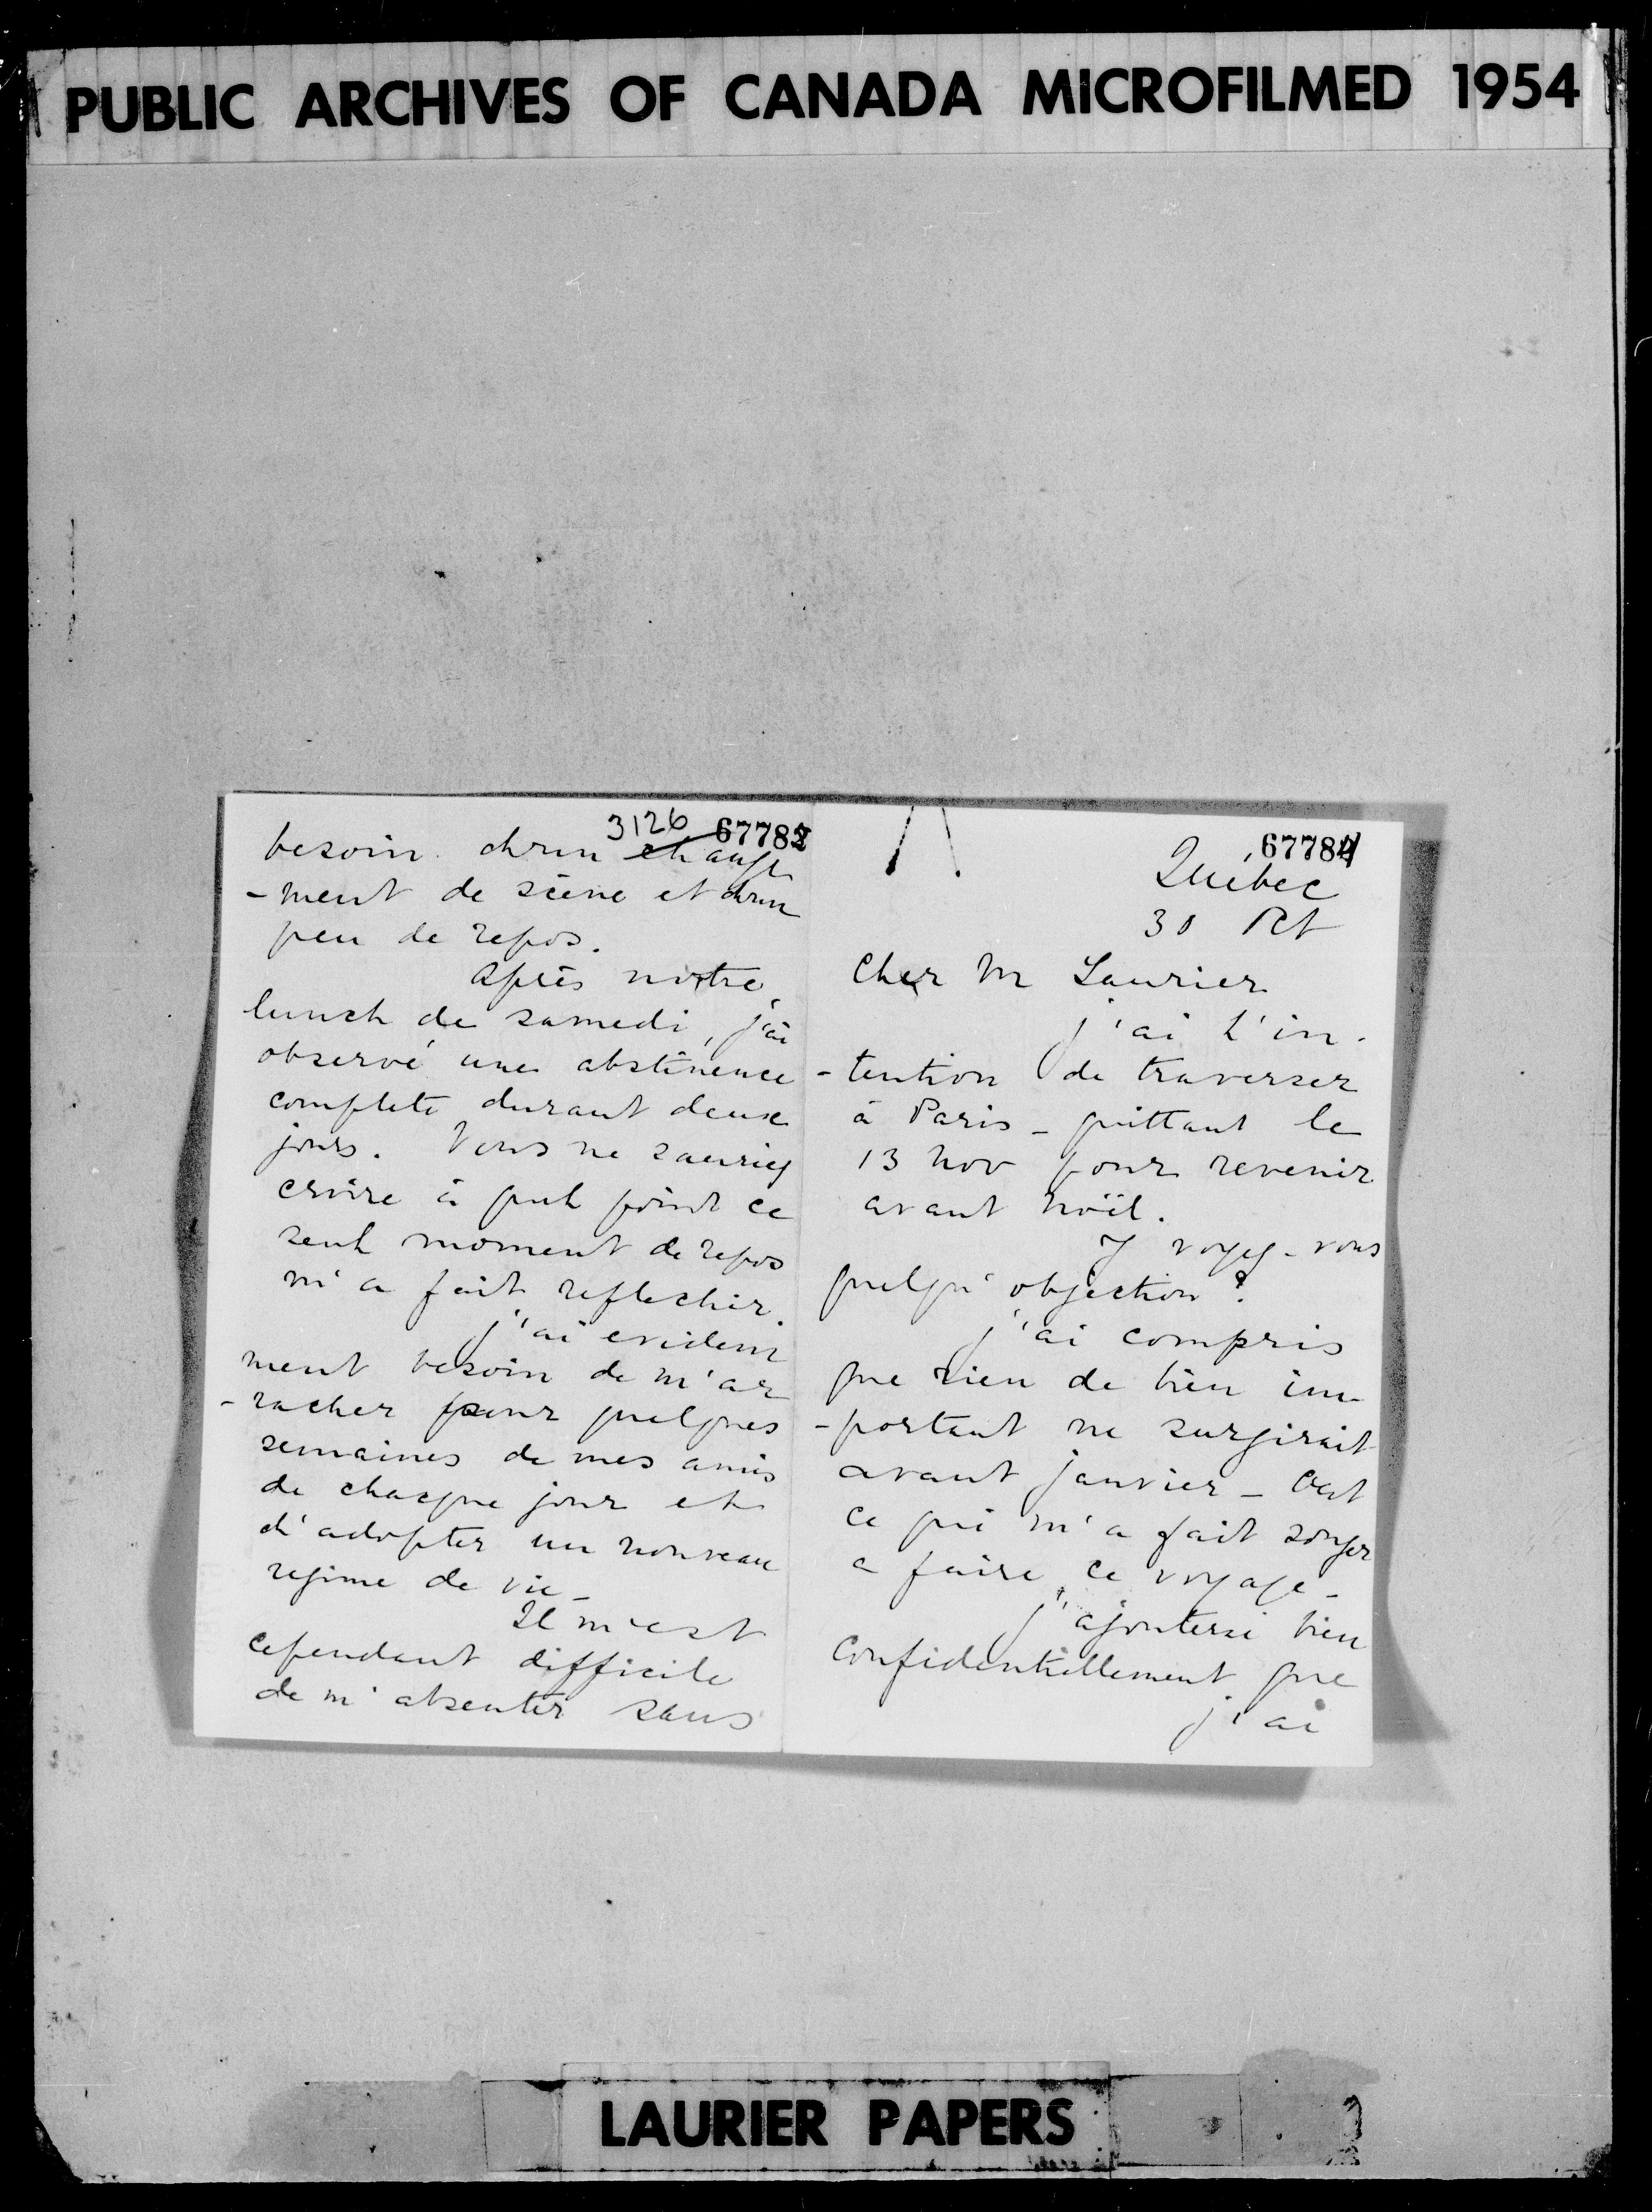 PUBLIC ARCHIVES OF CANADA MICROFILMED 1954
67784
Québec
30 Oct
Cher M Laurier
j'ai l'in-
-tention de traverser
à Paris - quittant le
13 Nov pour revenir
avant Noël.
Y voyez-vous
quelqu'objection?
j'ai compris
que rien de bien im-
-portant ne surgirait
avant janvier - C'est
ce qui m'a fait songer
a faire ce voyage -
j'ajouterai bien
confidentiellement que
j'ai
3126 67782
besoin d'un change
-ment de scène et d'un
peu de repos.
Après notre
lunch de samedi, j'ai
observé une abstinence
complete durant deux
jours. Vous ne sauriez
croire à quel point ce
seul moment de repos
m'a fait reflechir.
j'ai evidem
ment besoin de m'ar
-racher pour quelques
semaines de mes amis
de chaque jour et
d'adopter un nouveau
regime de vie -
Il m'est
cependant difficile
de m'absenter sans
LAURIER PAPERS